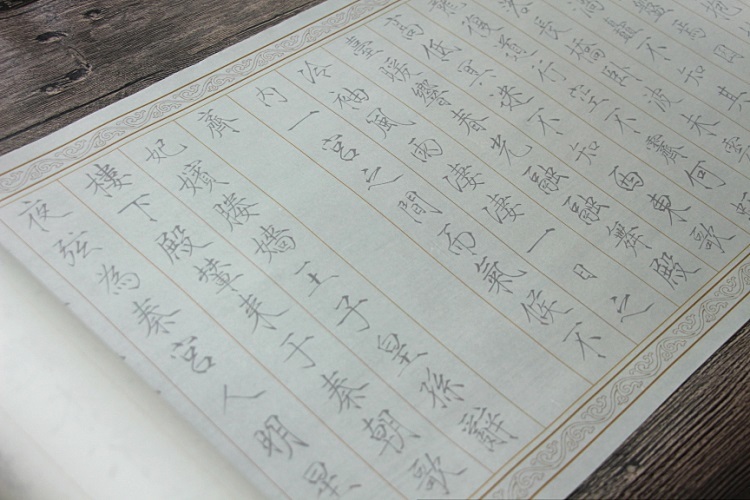 盤焉
渦矗不知其
落長橋臥波未雲
龍復道行空不霽何
高低冥迷不知西東歌
臺暖響春光融融舞殿
冷袖風雨淒淒一日之
內一宮之間而氣候不
齊
妃嬪媵嬙王子皇孫辭
樓下殿輦来于秦朝歌
夜弦為秦宮人明星